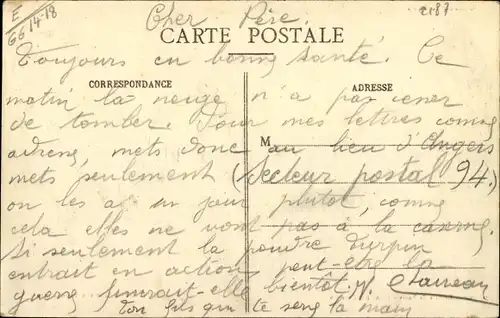 E
GG 14-18
2187
Cher Père.
CARTE POSTALE
Toujours en bonne santé. Ce
CORRESPONDANCE
ADRESSE
matin la neige n'a pas cessé
de tomber. Pour mes lettres comme
M
adresse, mets donc au lieu d'Angers
mets seulement (Secteur postal 94.)
on les a un jour plutôt, comme
cela elles ne vont pas à la caserne.
Si seulement la poudre turpin
entrait en action, peut-être la
guerre finirait-elle bientôt.
Ton fils qui te serre la main